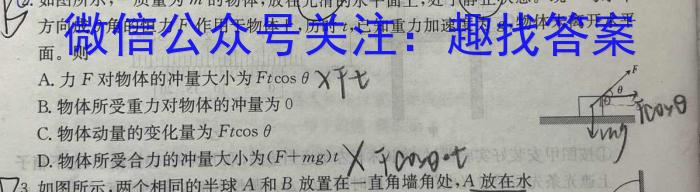 2. 如图所示,一质量为 m 的物体,放在光滑的水平面上,处于静止状态。
方向成 角的恒力 作用于物体 历时 t,已知重力加速度 物体 离开水平
面。则
微信公众号关注：趣找答案
A. 力 F 对物体的冲量大小为 Ftcos θ ×Ft
B. 物体所受重力对物体的冲量为 0
C. 物体动量的变化量为 Ftcos θ
D. 物体所受合力的冲量大小为(F+mg)t × Fcosθ·t
F
θ
Fcosθ
mg
3. 如图所示,两个相同的半球 A 和 B 放置在一直角墙角处,A 放在水